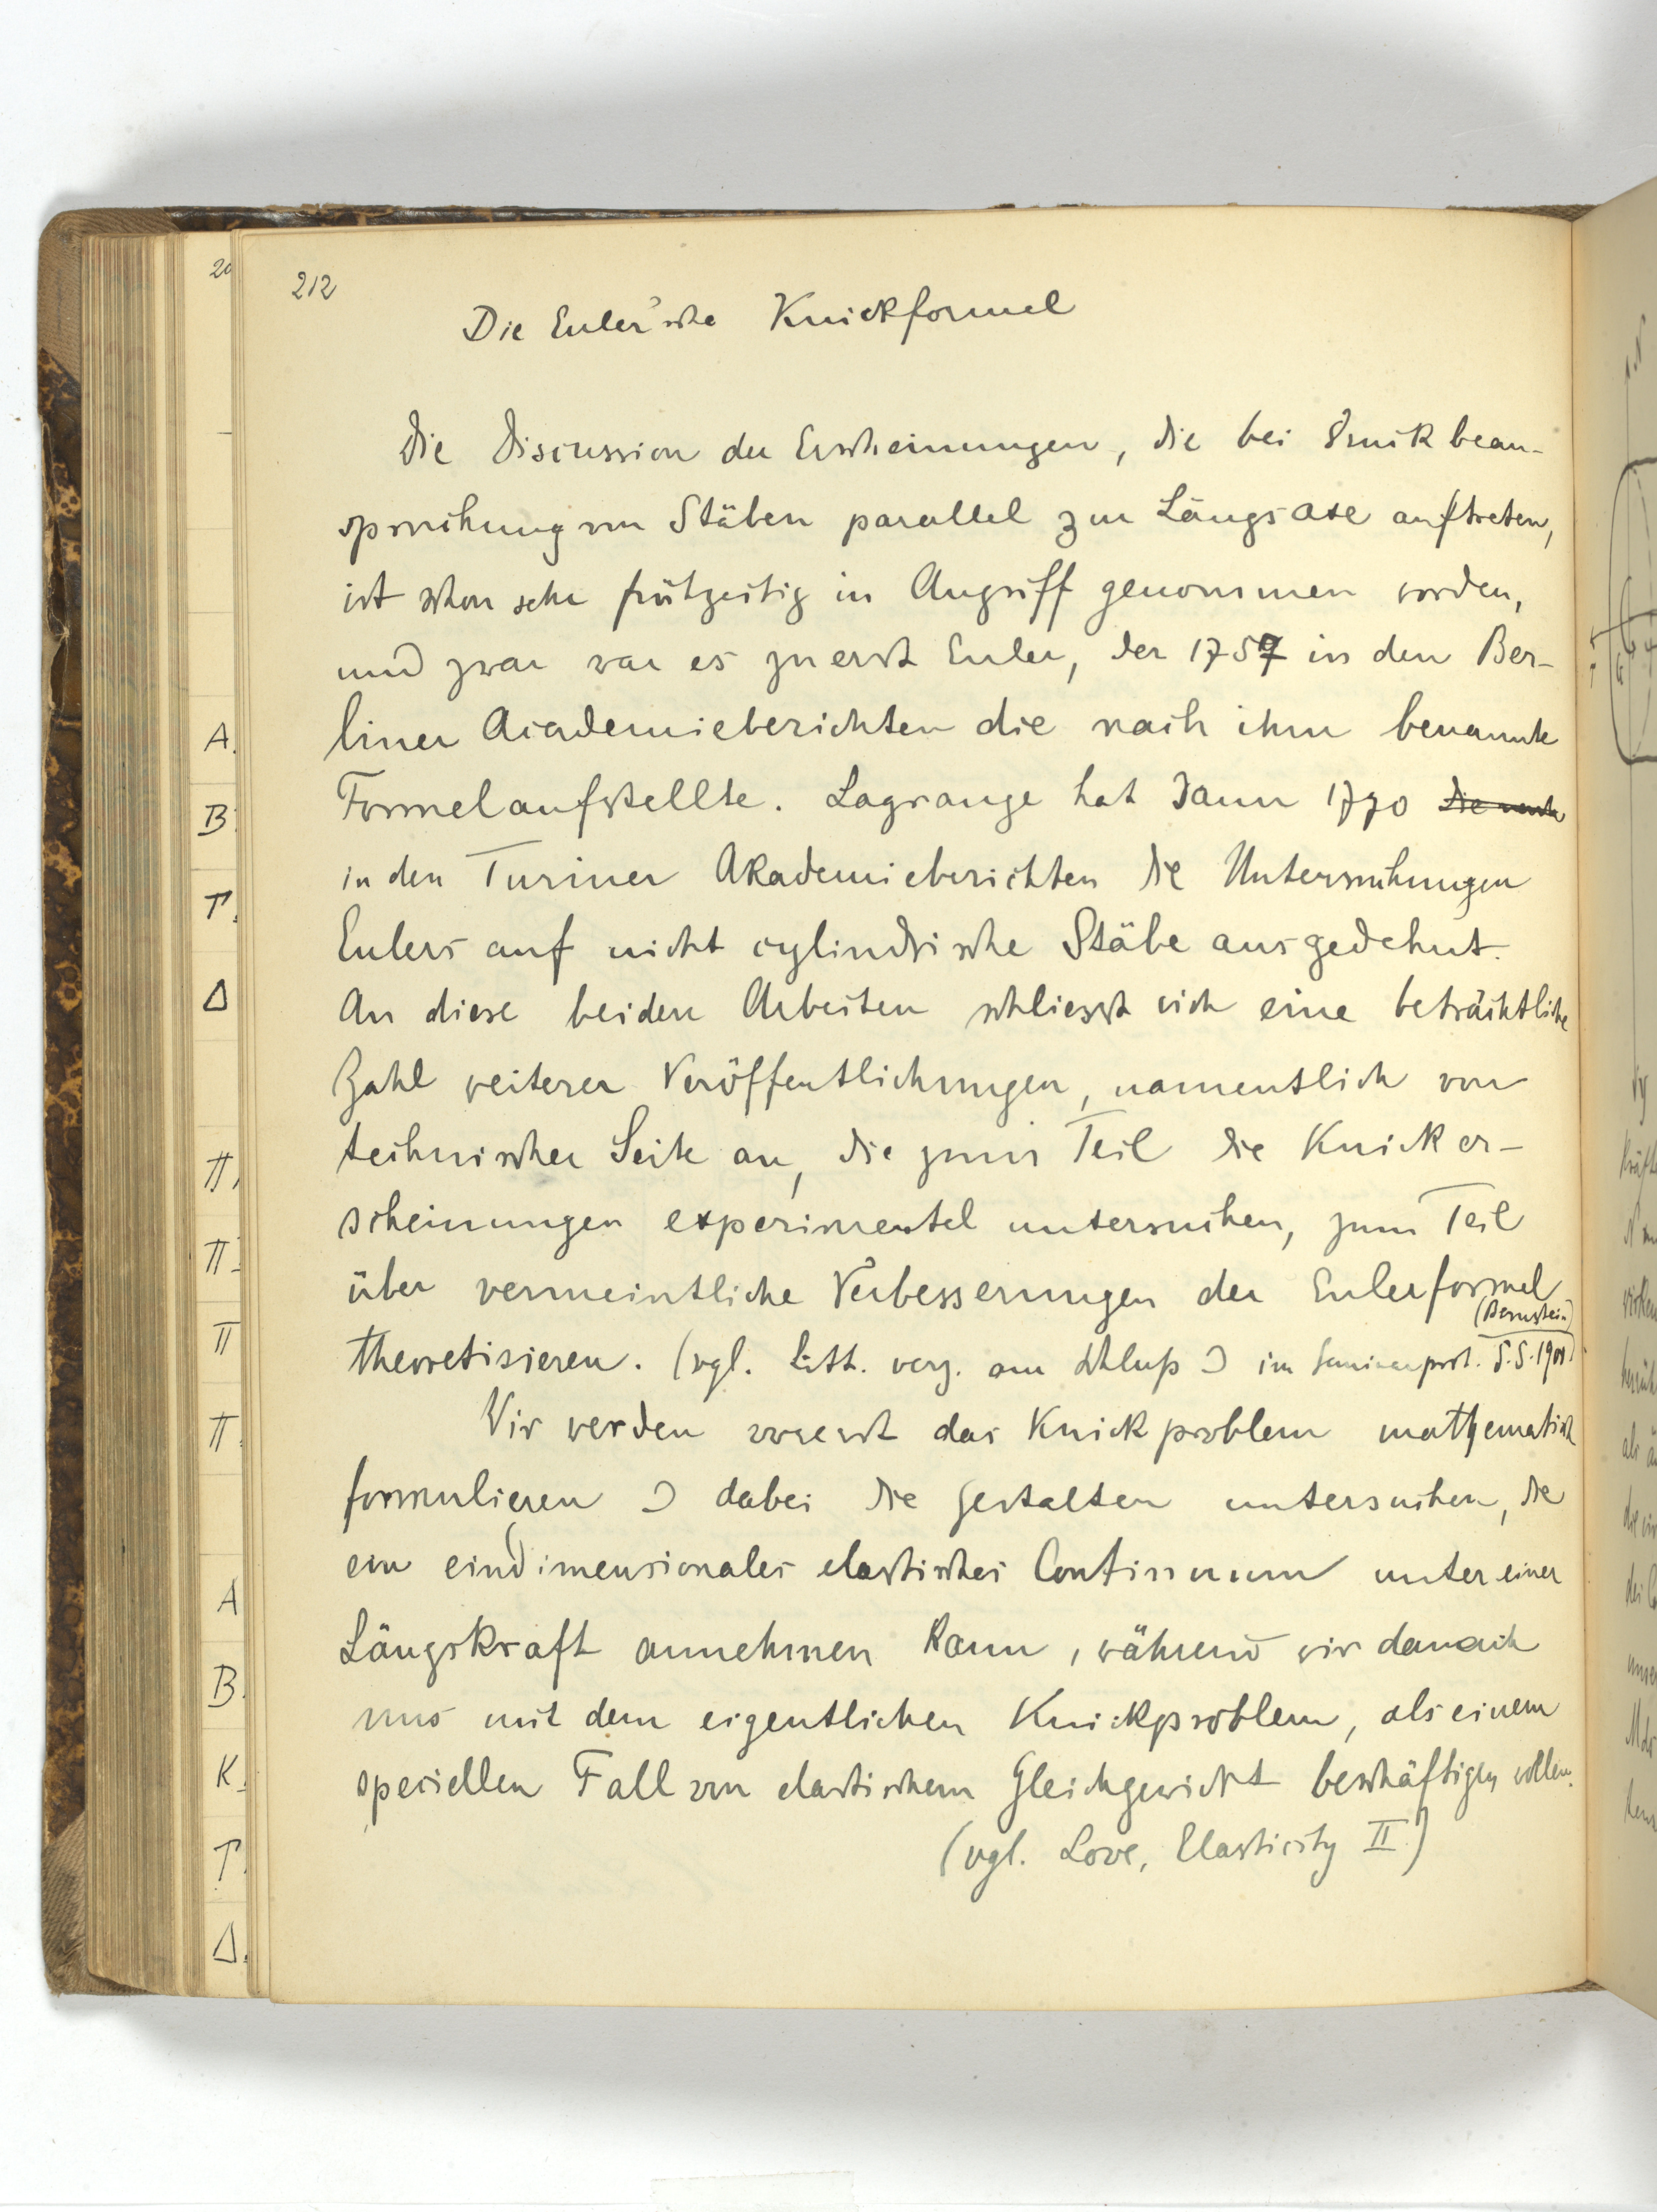 212
Die Euler'sche Knickformel
Die Discussion der Erscheinungen, die bei Druckbean-
spruchung von Stäben parallel zur Längsaxe auftreten,
ist schon sehr frühzeitig in Angriff genommen worden,
und zwar war es zuerst Euler, der 1757 in den Ber-
liner Academieberichten die nach ihm benannte
Formel aufstellte. Lagrange hat dann 1770
in den Turiner Akademieberichten die Untersuchungen
Eulers auf nicht cylindrische Stäbe ausgedehnt.
An diese beiden Arbeiten schliesst sich eine beträchtliche
Zahl weiterer Veröffentlichungen, namentlich von
technischer Seite an, die zum Teil die Knicker-
scheinungen experimentel untersuchen, zum Teil
über vermeintliche Verbesserungen der Eulerformel
(Bernstein)
theoretisieren. (vgl. Litt. verz. am Schluß im Seminarprot. S.S. 1901)
Wir werden vorerst das Knickproblem mathematisch
formulieren dabei die Gestalten untersuchen, die
ein eindimensionales elastisches Continuum unter einer
Längskraft annehmen kann, während wir danach
uns mit dem eigentlichen Knickproblem, als einem
speciellen Fall von elastischem Gleichgewicht beschäftigen wollen.
(vgl. Love, Elasticity II)
A.
B.
Γ.
Δ
Π.
Π.
Π
Π.
A
B.
K.
Γ.
Δ.